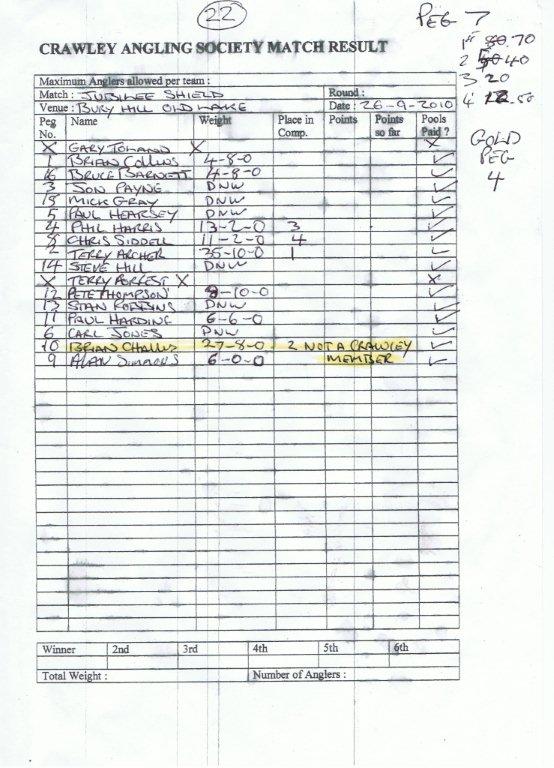 22
PEG 7
1st 80.70
2 50 40
3 20
4 12.50
GOLD
PEG
4
CRAWLEY ANGLING SOCIETY MATCH RESULT
Maximum Anglers allowed per team :
Match : JUBILEE SHIELD Round :
Venue : BURY HILL OLD LAKE Date : 26-9-2010
Peg No. Name Weight Place in Comp. Points Points so far Pools Paid ?
X GARY TOLAND X X
1 BRIAN COLLINS 4-8-0 ✓
16 BRUCE BARNETT 4-8-0 ✓
3 JON PAYNE DNW ✓
15 MICK GRAY DNW ✓
5 PAUL HEARSEY DNW ✓
4 PHIL HARRIS 13-2-0 3 ✓
8 CHRIS SIDDELL 11-2-0 4 ✓
2 TERRY ARCHER 35-10-0 1 ✓
14 STEVE HILL DNW ✓
X TERRY FORREST X X
12 PETE THOMPSON 8-10-0 ✓
13 STAN ROBBINS DNW ✓
11 PAUL HARDING 6-6-0 ✓
6 CARL JONES DNW ✓
10 BRIAN CHALLIS 27-8-0 2 NOT A CRAWLEY ✓
9 ALAN SIMMONS 6-0-0 MEMBER ✓
Winner 2nd 3rd 4th 5th 6th
Total Weight : Number of Anglers :